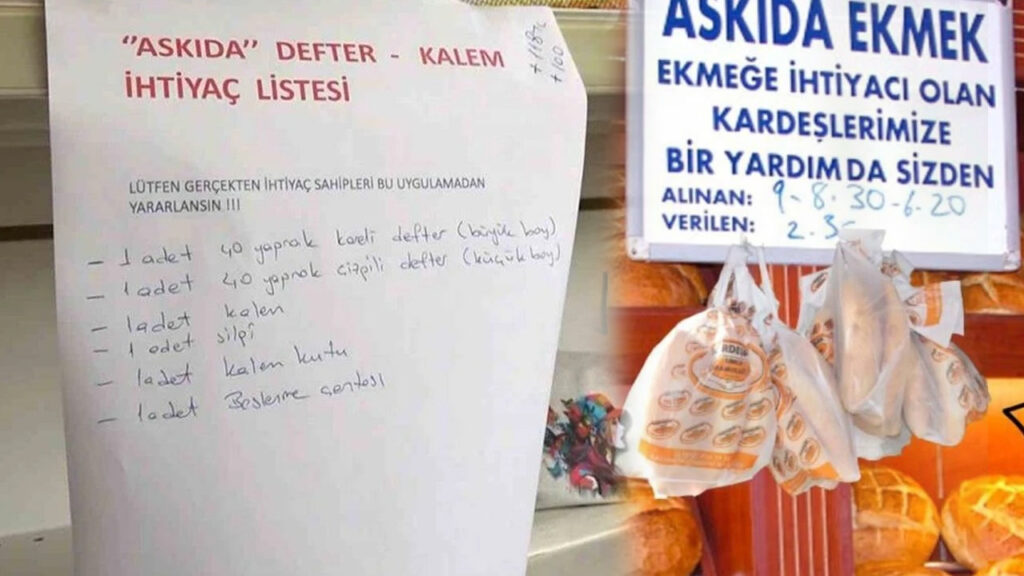 "ASKIDA" DEFTER - KALEM
İHTİYAÇ LİSTESİ
LÜTFEN GERÇEKTEN İHTİYAÇ SAHİPLERİ BU UYGULAMADAN
YARARLANSIN !!!
- 1 adet 40 yaprak kareli defter (büyük boy)
- 1 adet 40 yaprak çizgili defter (küçük boy)
- 1 adet kalem
- 1 adet silgi
- 1 adet kalem kutu
- 1 adet Beslenme çantası
ASKIDA EKMEK
EKMEĞE İHTİYACI OLAN
KARDEŞLERİMİZE
BİR YARDIM DA SİZDEN
ALINAN: 9-8-30-6-20
VERİLEN: 2-3-